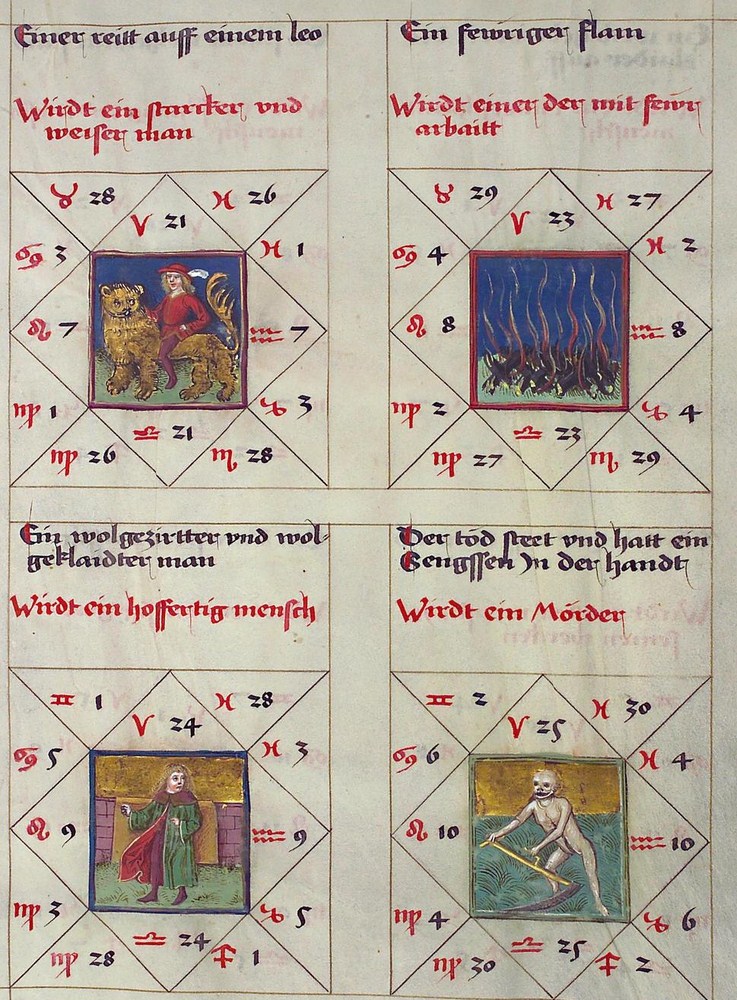 Einer reitt auff einem leo
Wirdt ein starcker vnd
weiser man
♉ 28
♈ 21
♓ 26
♋ 3
♓ 1
♌ 7
♒ 7
♍ 1
♑ 3
♎ 21
♍ 26
♏ 28
Ein fewriger flam
Wirdt einer der mit fewr
arbaitt
♉ 29
♈ 23
♓ 27
♋ 4
♓ 2
♌ 8
♒ 8
♍ 2
♑ 4
♎ 23
♍ 27
♏ 29
Ein wolgezirtter vnd wol-
geklaidter man
Wirdt ein hoffertig mensch
♊ 1
♈ 24
♓ 28
♋ 5
♓ 3
♌ 9
♒ 9
♍ 3
♑ 5
♎ 24
♍ 28
♐ 1
Der tod steet vnd hatt ein
Sengssen Jn der handt
Wirdt ein Mörder
♊ 2
♈ 25
♓ 30
♋ 6
♓ 4
♌ 10
♒ 10
♍ 4
♑ 6
♎ 25
♍ 30
♐ 2